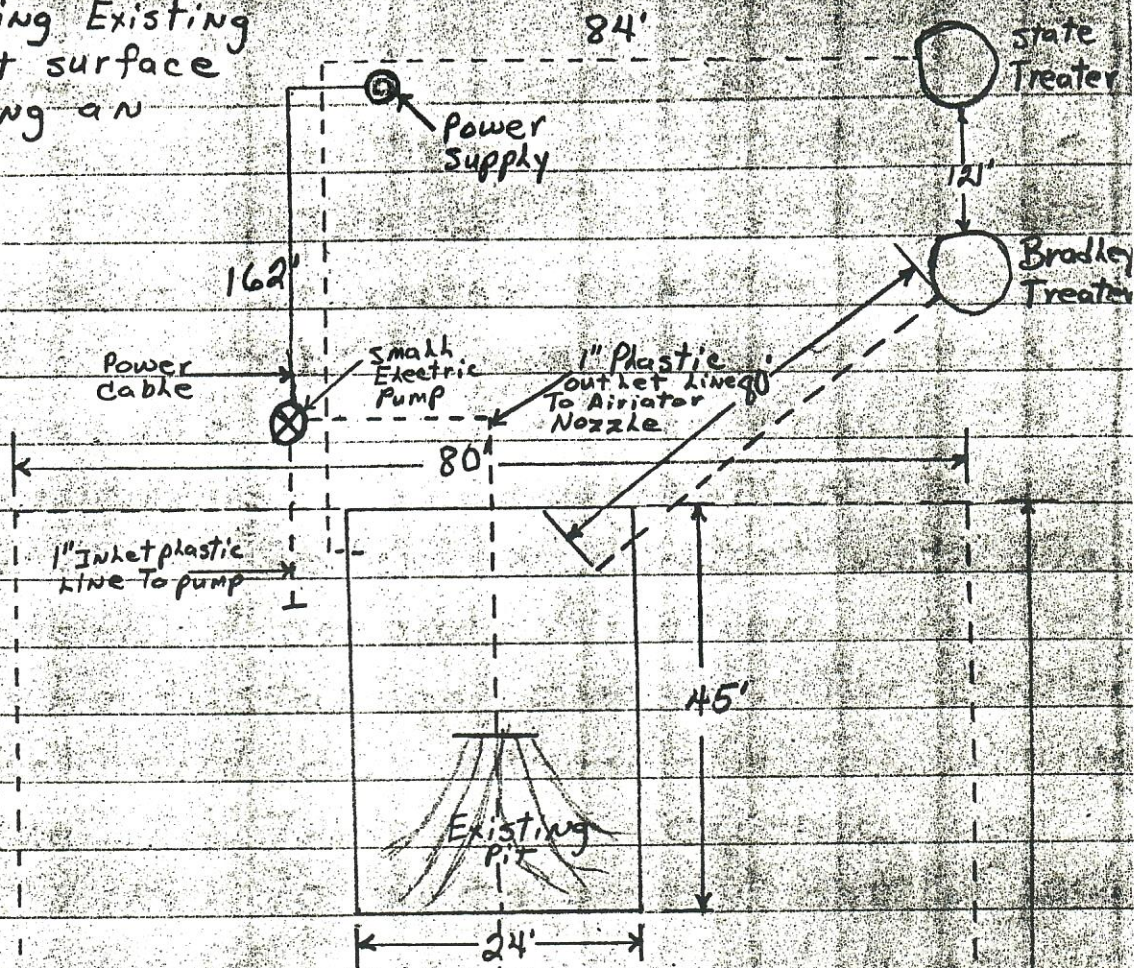 ing Existing
t surface
ng an
84'
State
Treater
Power
Supply
12'
Bradley
Treater
162'
Power
Cable
Small
Electric
Pump
1" Plastic
outlet Line
To Airiator
Nozzle
90'
80'
1" Inlet plastic
Line To pump
45'
Existing
Pit
24'